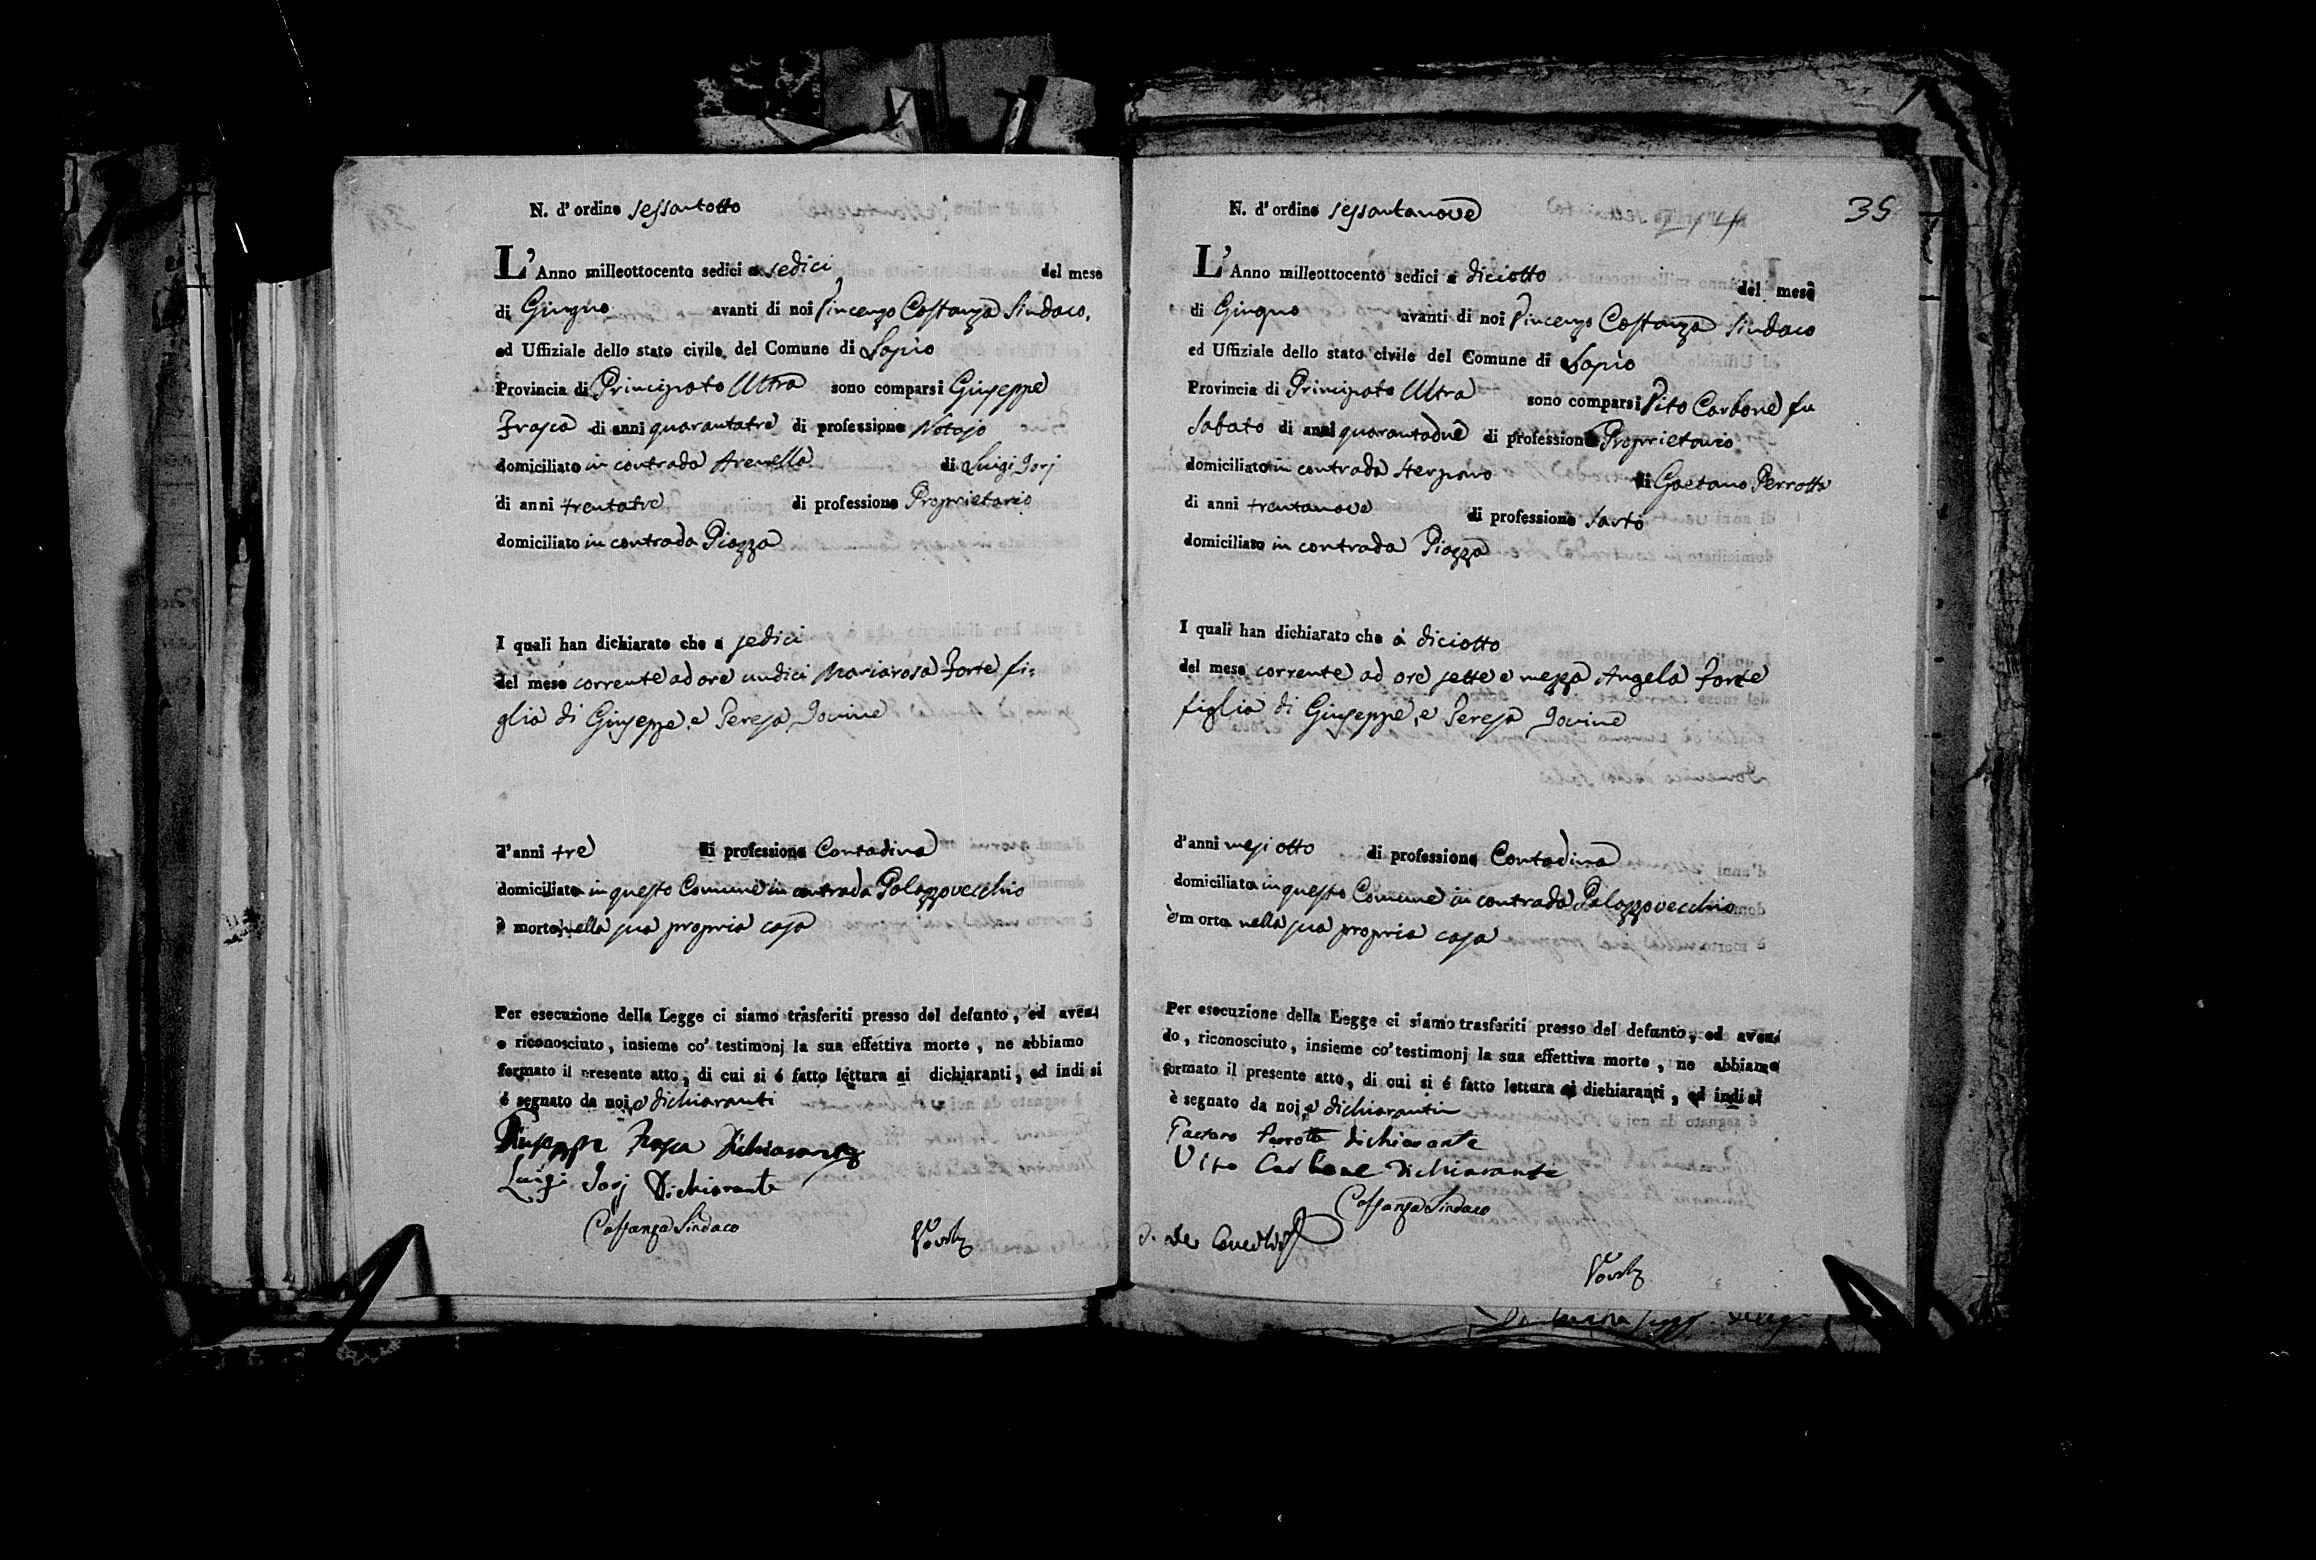 N. d'ordine sessantotto
L'Anno milleottocento sedici a sedici del mese
di Giugno avanti di noi Vincenzo Costanza Sindaco,
ed Uffiziale dello stato civile del Comune di Lapio
Provincia di Principato Ultra sono comparsi Giuseppe
Frasca di anni quarantatre di professione Notajo
domiciliato in contrada Arenella di Luigi Jorj
di anni trentatre di professione Proprietario
domiciliato in contrada Piazza
I quali han dichiarato che a sedici
del mese corrente ad ore undici Mariarosa Forte fi=
glia di Giuseppe, e Teresa Jovine
d'anni tre di professione Contadina
domiciliata in questo Comune in contrada Palazzovecchio
è morta nella sua propria casa
Per esecuzione della Legge ci siamo trasferiti presso del defunto, ed aven-
o riconosciuto, insieme co' testimonj la sua effettiva morte, ne abbiamo
formato il presente atto, di cui si é fatto lettura ai dichiaranti, ed indi si
é segnato da noi, e dichiaranti
Giuseppe Frasca Dichiarante
Luigi Jorj Dichiarante
Costanza Sindaco
35
N. d'ordine sessantanove
L'Anno milleottocento sedici a diciotto del mese
di Giugno avanti di noi Vincenzo Costanza Sindaco
ed Uffiziale dello stato civile del Comune di Lapio
Provincia di Principato Ultra sono comparsi Vito Carbone fu
Sabato di anni quarantadue di professione Proprietario
domiciliato in contrada di Gaetano Perrotta
di anni trentanove di professione Sarto
domiciliato in contrada Piazza
I quali han dichiarato che a diciotto
del mese corrente ad ore sette e mezza Angela Forte
figlia di Giuseppe, e Teresa Jovine
d'anni mesi otto di professione Contadina
domiciliata in questo Comune in contrada Palazzovecchio
è morta nella sua propria casa
Per esecuzione della Legge ci siamo trasferiti presso del defunto, ed aven-
do, riconosciuto, insieme co' testimonj la sua effettiva morte, ne abbiamo
formato il presente atto, di cui si é fatto lettura ai dichiaranti, ed indi si
è segnato da noi, e dichiaranti
Gaetano Perrotta dichiarante
Vito Carbone Dichiarante
Costanza Sindaco